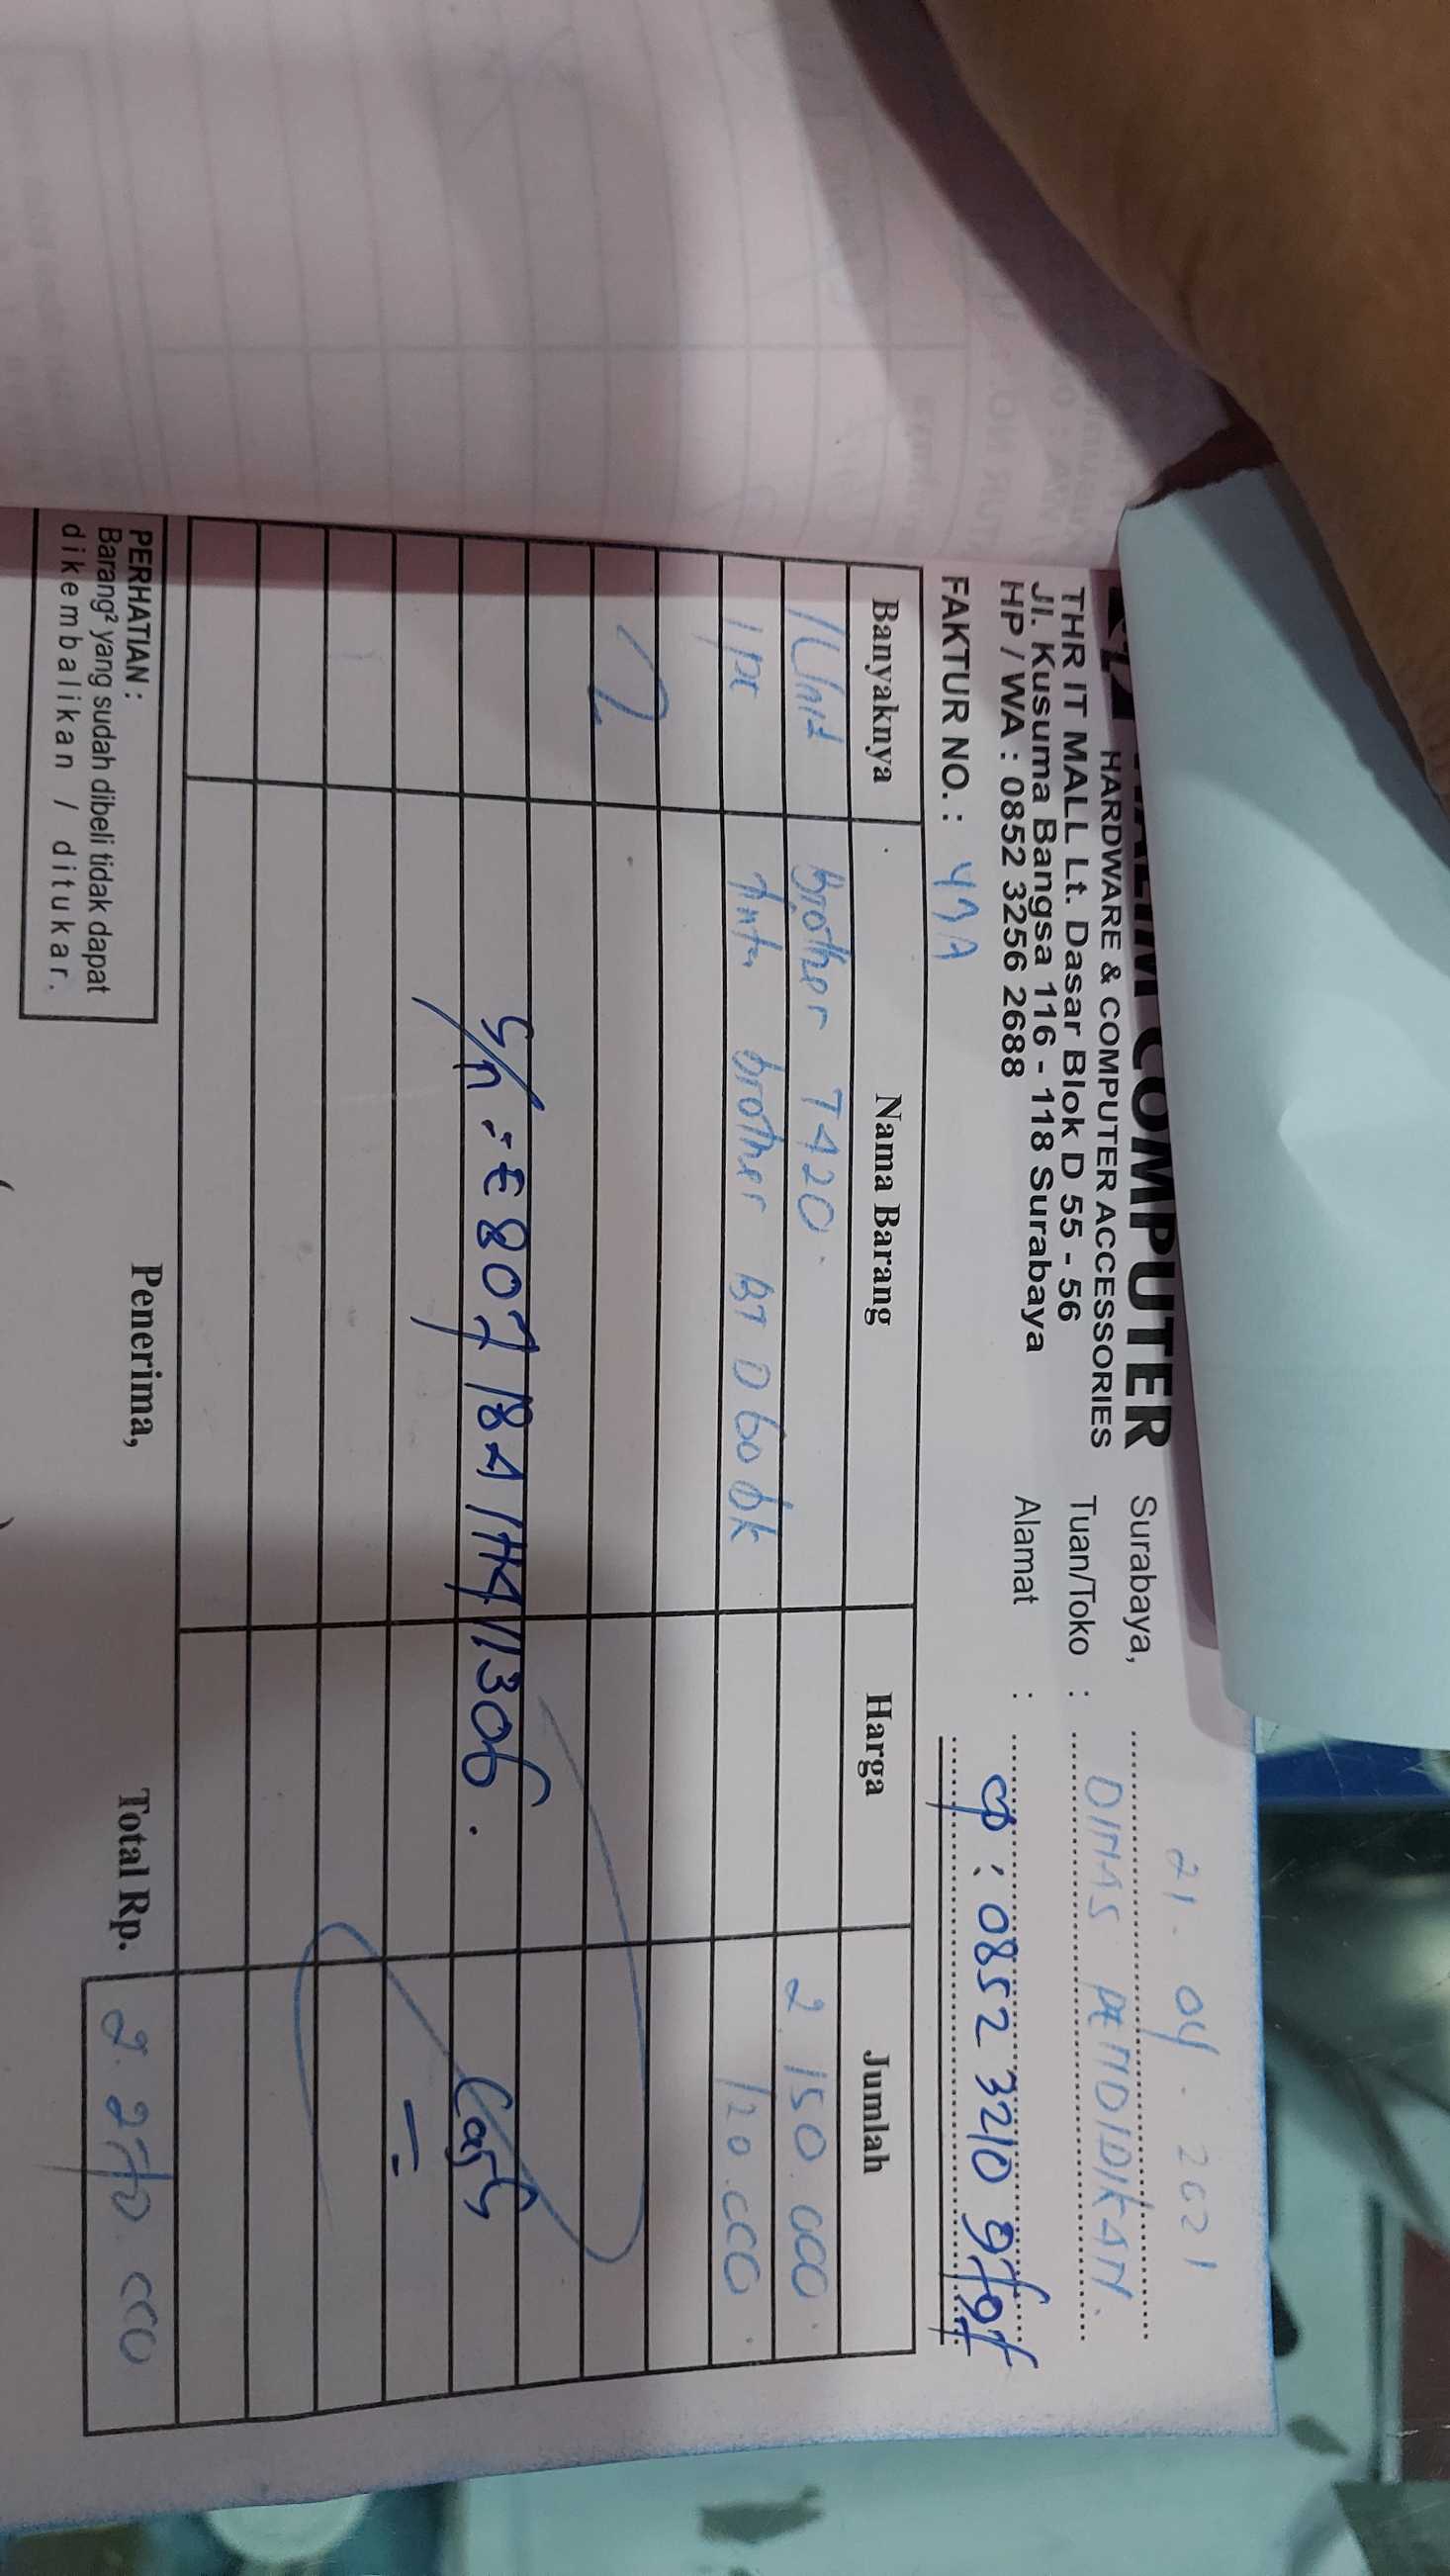 COMPUTER
HARDWARE & COMPUTER ACCESSORIES
THR IT MALL Lt. Dasar Blok D 55 - 56
Jl. Kusuma Bangsa 116 - 118 Surabaya
HP / WA : 0852 3256 2688
FAKTUR NO. :
Surabaya, 21 . 04 . 2021
Tuan/Toko : DINAS PENDIDIKAN.
Alamat :
cp : 0852 3210 9898
Banyaknya Nama Barang Harga Jumlah
1 Unit Brother T420. 2 150.000.
1 pc tinta brother BT D60 bk 120.000
S/n : E80718A1H411306.
Cash
PERHATIAN :
Barang² yang sudah dibeli tidak dapat
dikembalikan / ditukar.
Penerima,
Total Rp. 2.270.000